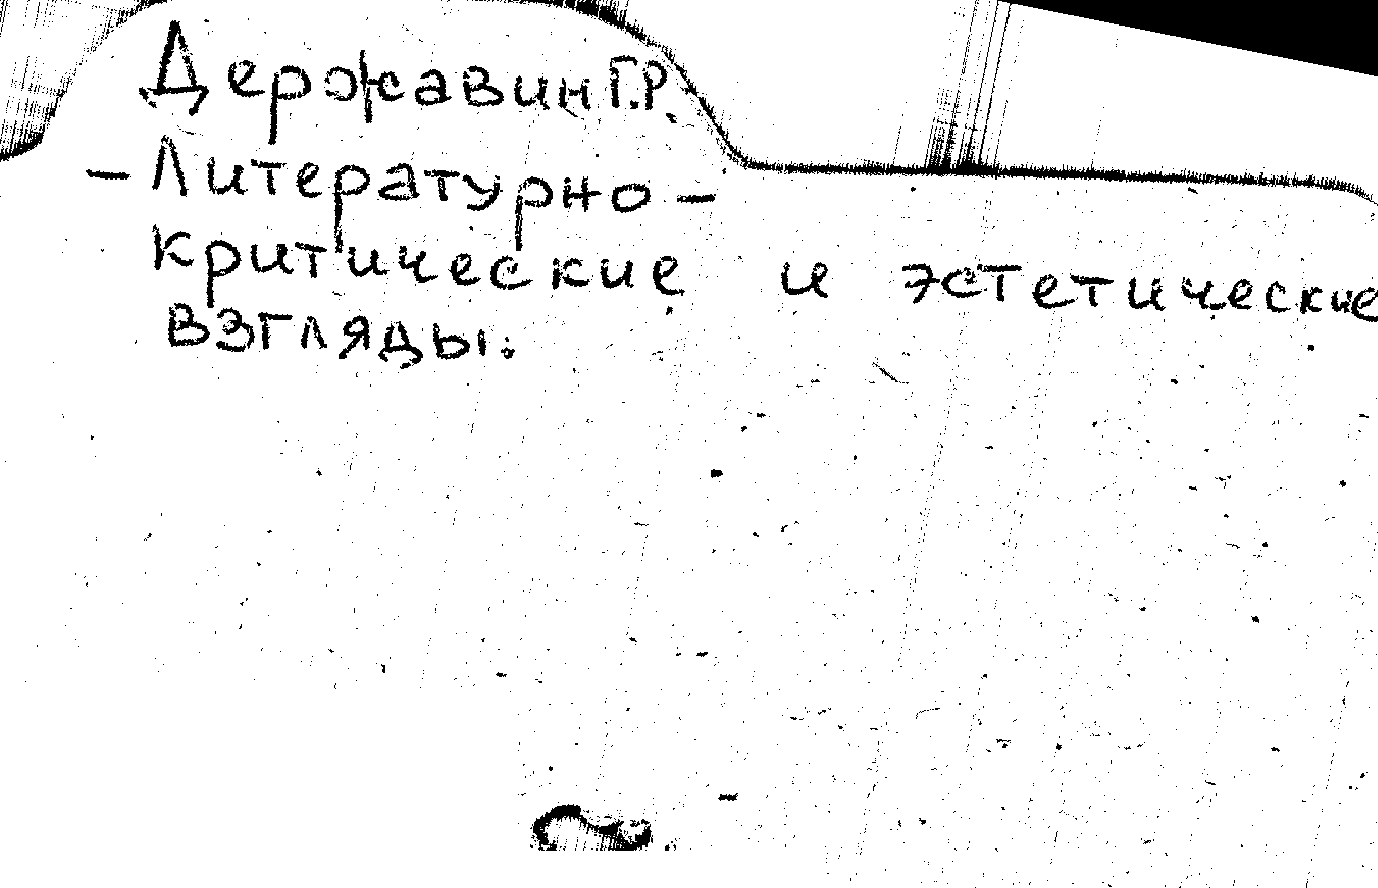 Державин Г.Р.
- Литературно -
критические и эстетические
взгляды.